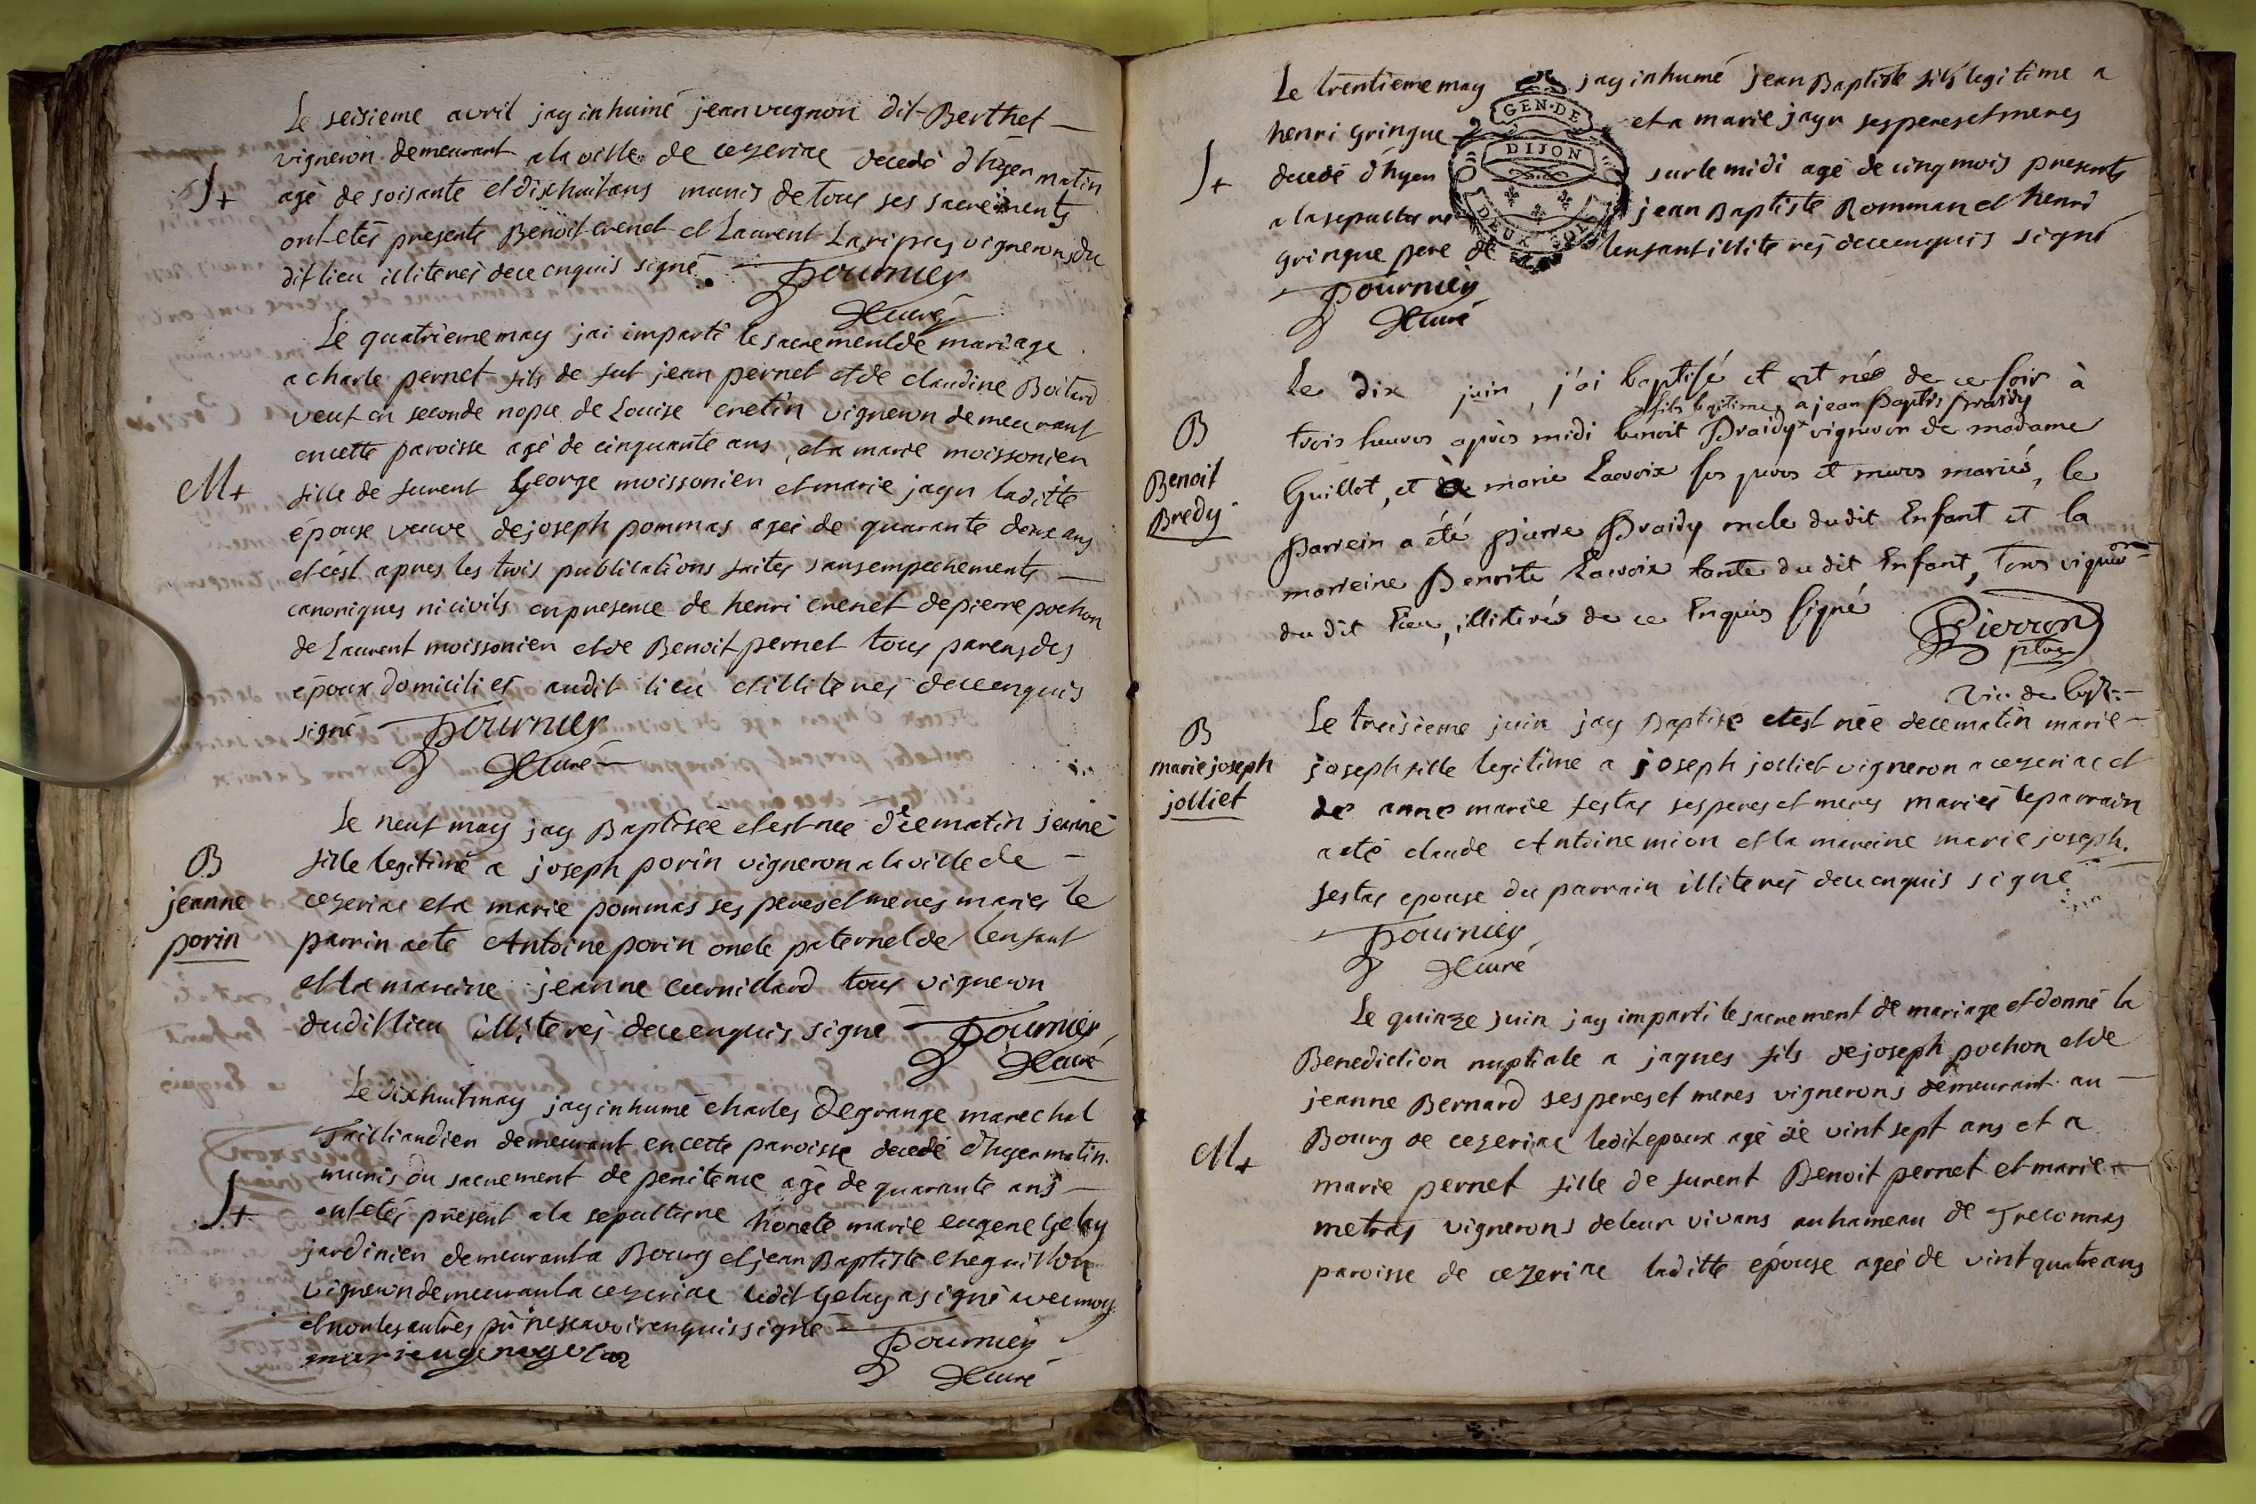 Le seisieme avril jay inhumé jean vugnon dit Berthet
vigneron demeurant a la ville de cezeriac decedé d'hyer matin
S+
agé de soisante et dixhuit ans munis de tous ses sacrements
ont etés presents Benoit crenet et Laurent Laripes vignerons du
dit lieu illiterés de ce enquis signé Fournier
Curé
Le quatrieme may jai imparti le sacrement de mariage
a charle pernet fils de fut jean pernet et de claudine Boitard
veuf en seconde nopce de Louise cretin vigneron demeurant
en cette paroisse agé de cinquante ans et a marie moissonien
M+
fille de furent George moissonien et marie jayr laditte
épouse veuve de joseph pommas ageé de quarante deux ans
et cest apres les trois publications faites sans empechements
canoniques ni civils en presence de henri crenet de pierre pochon
de Laurent moissonien et de Benoit pernet tous parens des
époux domiciliés audit lieu et illiterés de ce enquis
signé Fournier
Curé
Le neuf may jay Baptisée et est née de ce matin jeanne
B
jeanne
porin
fille legitime a joseph porin vigneron a la ville de
cezeriac et a marie pommas ses peres et meres mariés le
parrin a eté Antoine porin oncle paternel de lenfant
et la mareine jeanne cuvillard tous vigneron
dudit lieu illiterés de ce enquis signé Fournier
Curé
Le dixhuit may jay inhumé charles Degrange marechal
Tailliandier demeurant en cette paroisse decedé d'hyer matin
munis du sacrement de penitence agé de quarante ans
S+
ont etés présent a la sepulture honete marie eugene Gelay
jardinier demeurant a Bourg et jean Baptiste cheguillon
vigneron demeurant a cezeriac ledit Gelay a signé avec moy
et non les autres pr ne scavoir enquis signé Fournier
Curé
Le trentieme may jay inhumé jean Baptiste fils legitime a
henri gringue et a marie jayr ses peres et meres
S+
decedé d'hyer sur le midi agé de cinq mois presents
a la sepulture jean Baptiste Romman et henri
gringue pere de lenfant illiterés de ce enquis signé
GEN. DE
DIJON
DEUX SOLS
Fournier
Curé
Le dix juin, j'ai baptisé et est né de ce soir à
fils legitime a jean Baptis Braidy
B
Benoit
Bredy
trois heures après midi benoit Braidy vigneron de madame
Guillot, et de marie Lacroix ses peres et meres mariés, le
Parrein a été Pierre Braidy oncle dudit Enfant et la
marreine Benoite Lacroix tante du dit Enfant, tous vigneron
du dit Lieu, illiterés de ce Enquis signé
Pierron
ptre
vic de Ceys.
Le treisieme juin jay Baptisé et est née de ce matin marie
B
marie joseph
jolliet
joseph fille legitime a joseph jolliet vigneron a cezeriac et
de anne marie festas ses peres et meres mariés le parrain
a eté claude Antoine mion et la mareine marie joseph
festas epouse du parrain illiterés de ce enquis signé
Fournier
Curé
Le quinze juin jay imparti le sacrement de mariage et donné la
Benediction nuptiale a jaques fils de joseph pochon et de
jeanne Bernard ses peres et meres vignerons demeurant au
M+
Bourg de cezeriac ledit epoux agé de vint sept ans et a
marie pernet fille de furent Benoit pernet et marie
metras vignerons de leur vivans au hameau de Treconnas
paroisse de cezeriac laditte épouse ageé de vint quatre ans